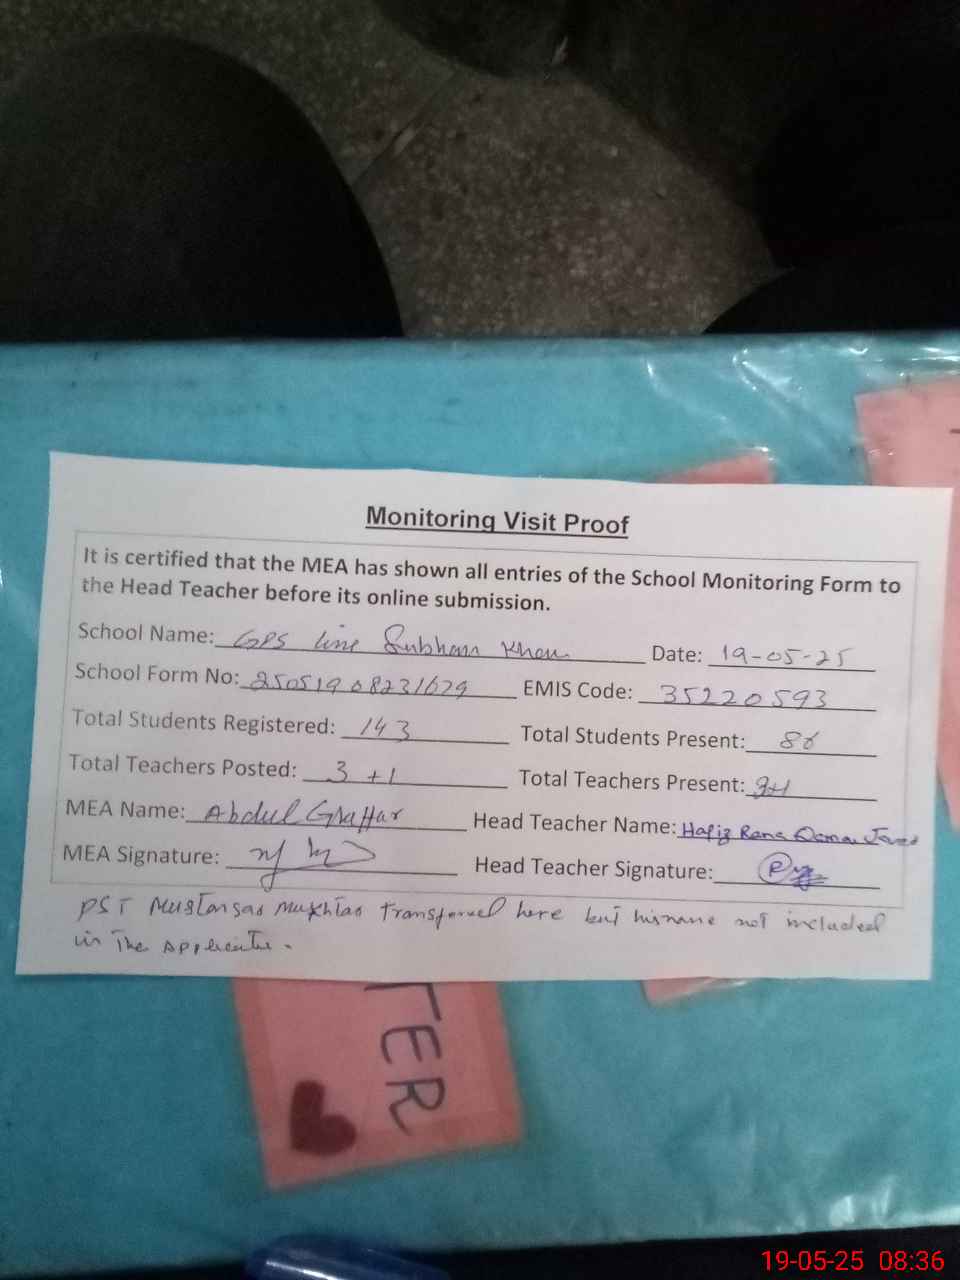 Monitoring Visit Proof
It is certified that the MEA has shown all entries of the School Monitoring Form to
the Head Teacher before its online submission.
School Name: GPS line Subhan Khan Date: 19-05-25
School Form No: 25051908231679 EMIS Code: 35220593
Total Students Registered: 143 Total Students Present:
Total Teachers Posted: 3 +1 Total Teachers Present:
MEA Name: Abdul Ghaffar Head Teacher Name: Hafiz Rana Javed
MEA Signature: Head Teacher Signature:
PST Mukhtar transferred here but his name not included
in the
TER
19-05-25 08:36